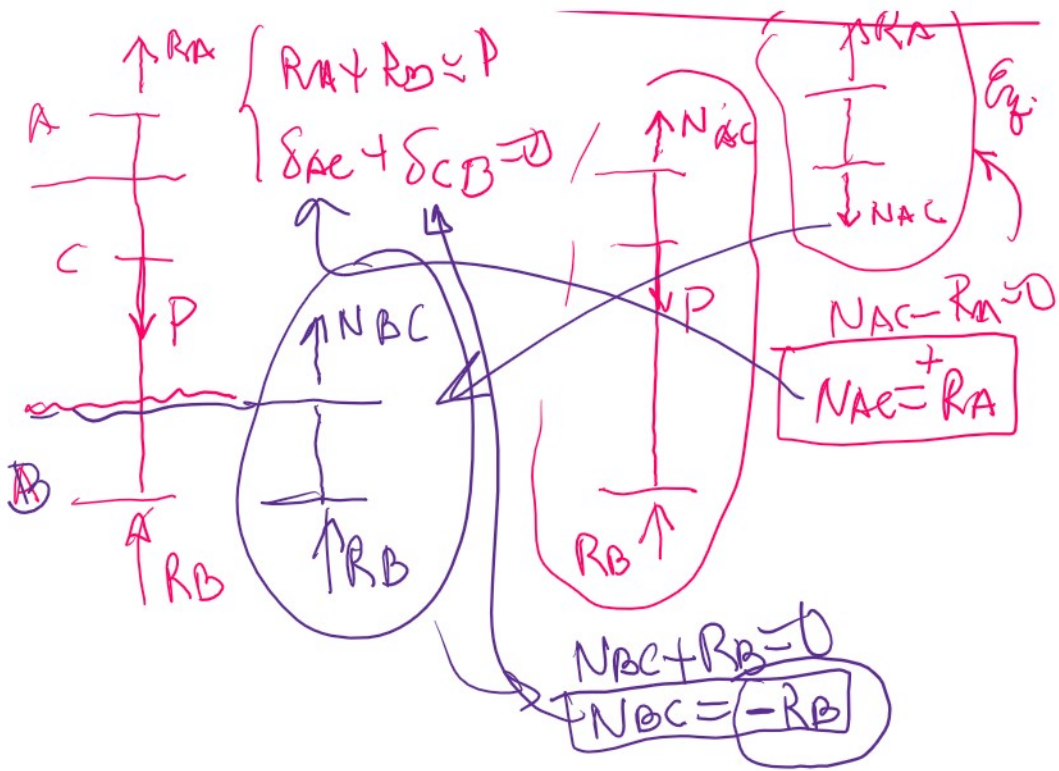 RA
A
C
P
B
RB
RA + RB = P
δAC + δCB = 0
NBC
RB
NAC
P
RB
RA
NAC
Eq.
NAC - RA = 0
NAC = + RA
NBC + RB = 0
NBC = -RB